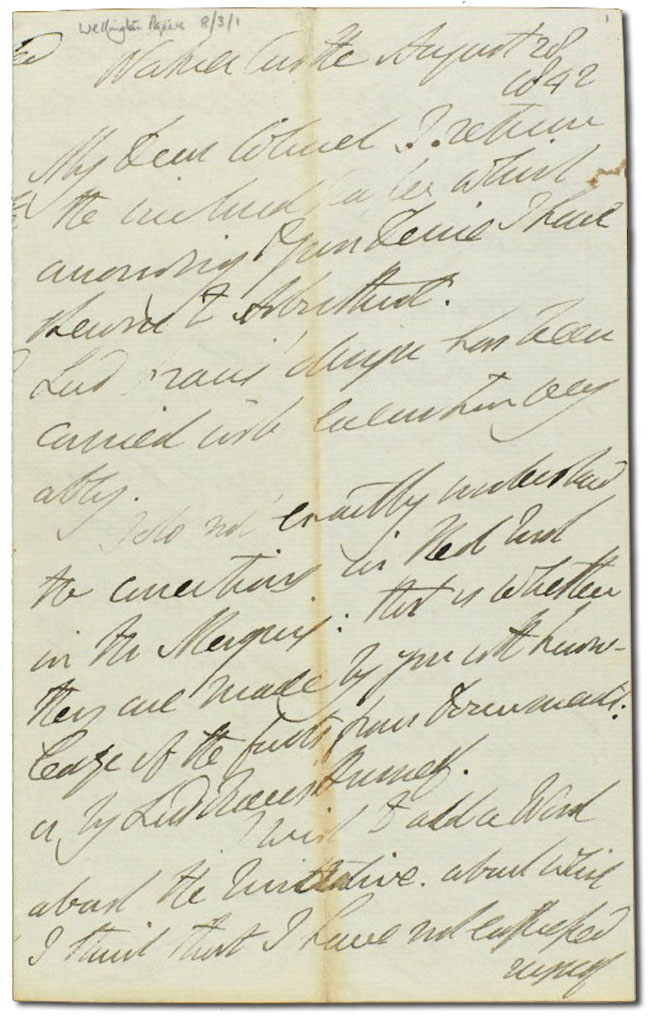 Wellington Papers 8/3/1
Walmer Castle August 28
1842
My Dear Colonel I return
the inclosed which
according to your desire I have
shewn to Arbuthnot.
Lord design has been
carried into execution very
ably.
I do not exactly understand
the corrections in Red Ink
in the Margin: that is whether
they are made by you with know-
ledge of the facts from Documents:
or by Lord himself.
I wish to add a Word
about the Narrative. about which
I think that I have not expressed
myself